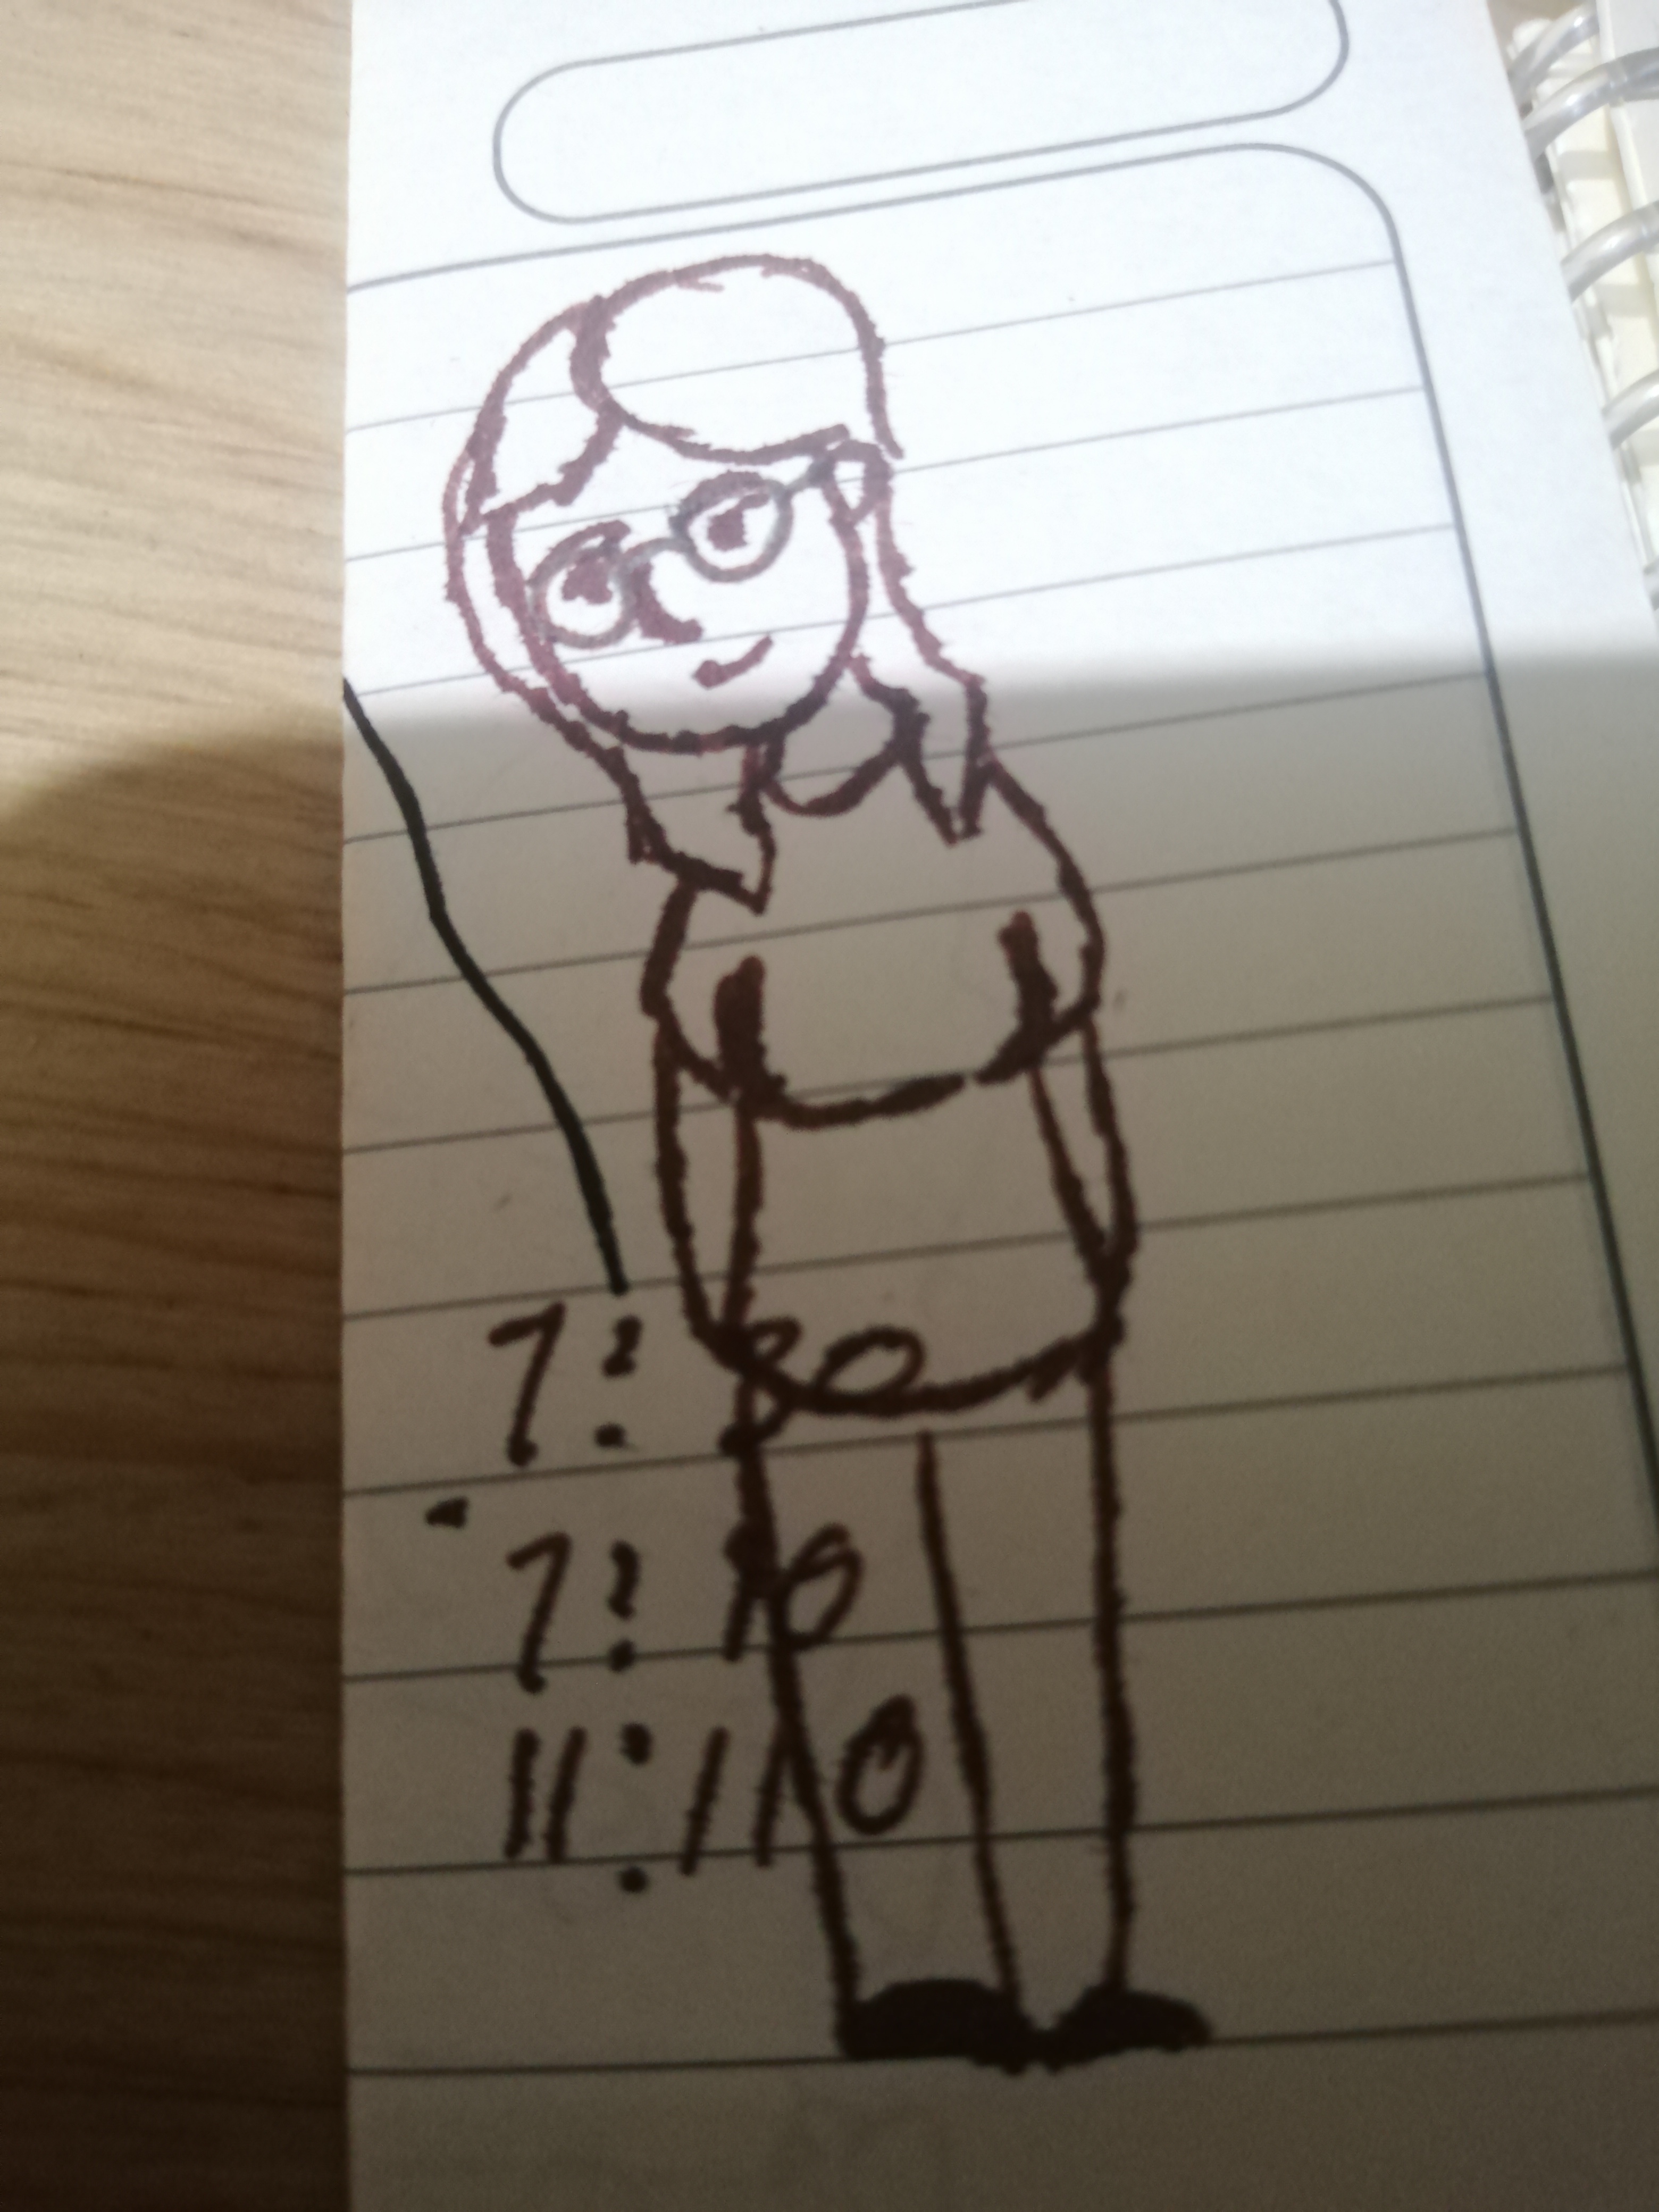 7:30
7:10
11:110